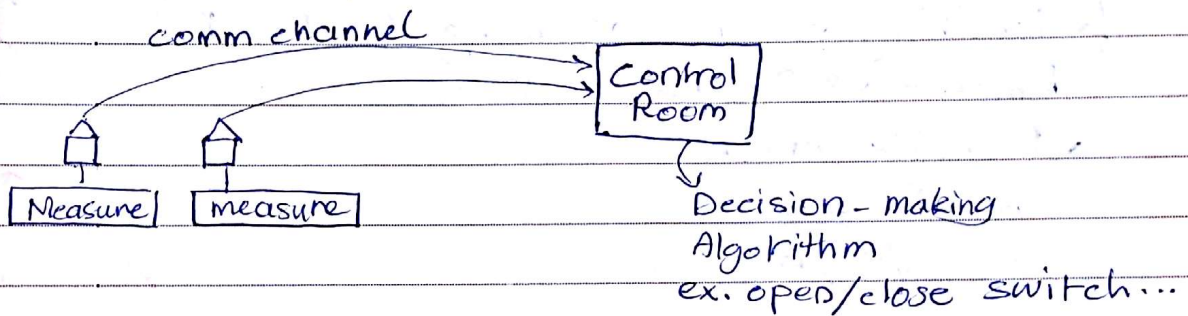 comm channel
Control
Room
Measure
measure
Decision - making
Algorithm
ex. open/close switch...